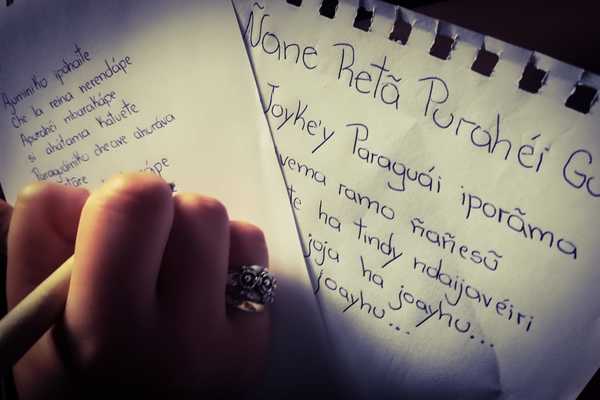 Ayminiko ipohaite
Che la reina nerendápe
Apurahéi mbarakápe
si ahátama katuete
Paraguáiniko che ave ahayhuva
Ñane Retã Purahéi Gu
Joyke'y Paraguái iporãma
vema ramo ñañesũ
te ha tindy ndaijavéiri
joja ha joayhu...
joayhu...